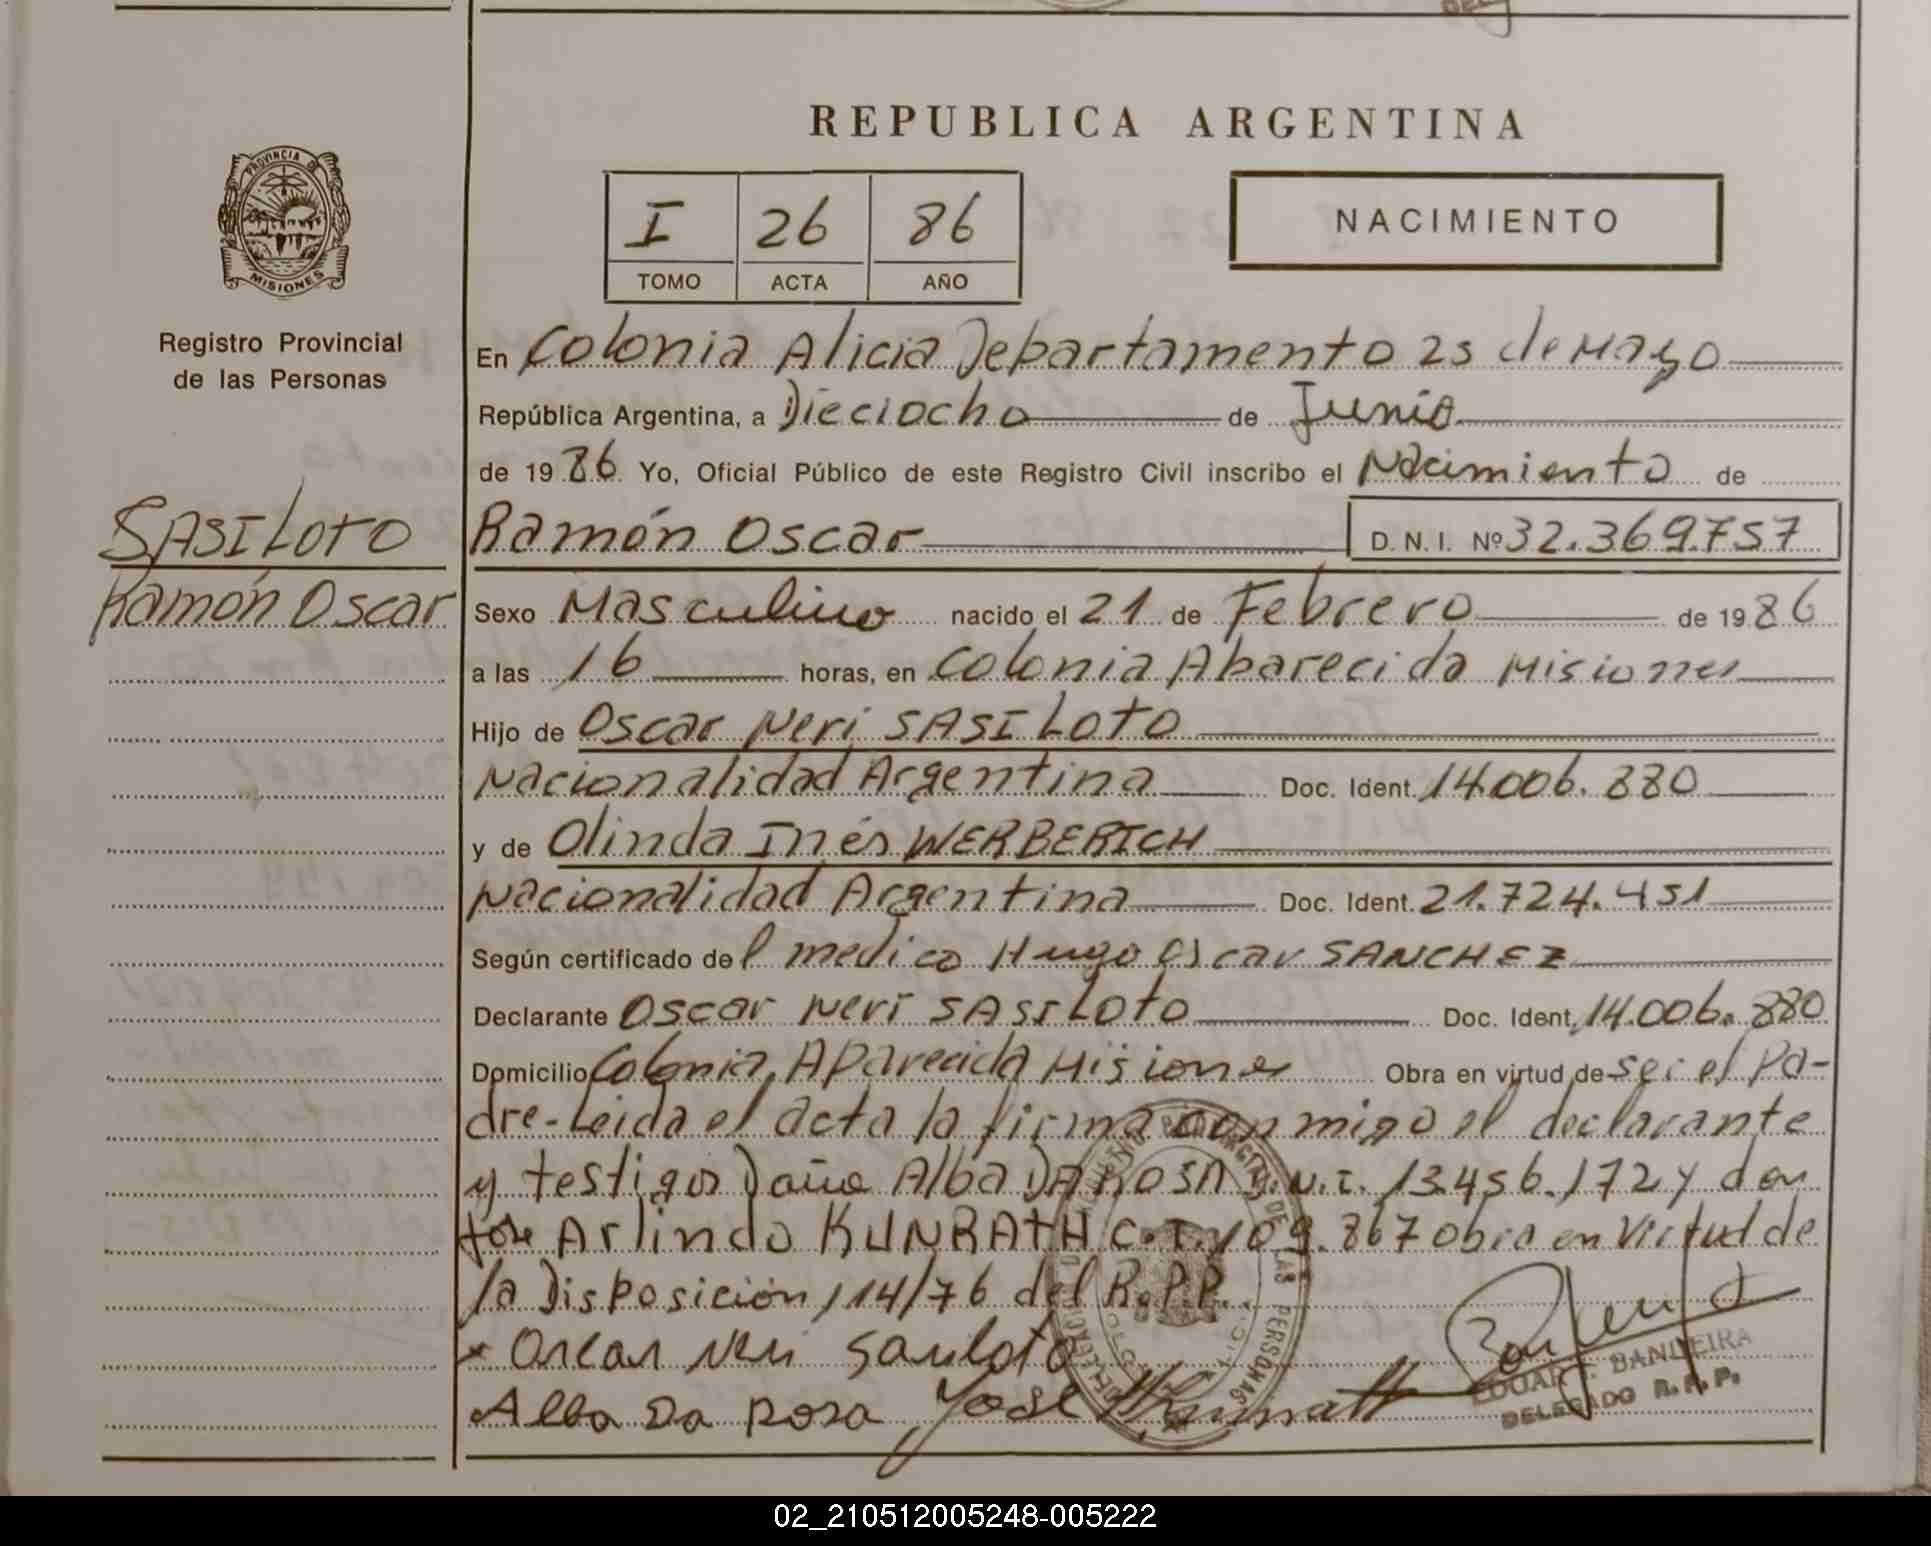 REPUBLICA ARGENTINA
PROVINCIA DE
MISIONES
Registro Provincial
de las Personas
I 26 86
TOMO ACTA AÑO
NACIMIENTO
En Colonia Alicia Departamento 25 de Mayo
República Argentina, a Dieciocho de Junio
de 1986 Yo, Oficial Público de este Registro Civil inscribo el Nacimiento de
SASILOTO
Ramón Oscar
Ramón Oscar D. N. I. Nº 32.369.757
Sexo Masculino nacido el 21 de Febrero de 1986
a las 16 horas, en Colonia Aparecida Misiones
Hijo de Oscar Neri SASILOTO
Nacionalidad Argentina Doc. Ident. 14.006.880
y de Olinda Inés WERBERICH
Nacionalidad Argentina Doc. Ident. 21.724.451
Según certificado del medico Hugo Oscar SANCHEZ
Declarante Oscar Neri SASILOTO Doc. Ident. 14.006.880
Domicilio Colonia Aparecida Misiones Obra en virtud de ser el Pa-
dre-Leida el acta la firma conmigo el declarante
y testigos Doña Alba DA ROSA D.N.I. 13.456.172 y don
José Arlindo KUNRATH C.I. 109.867 obra en Virtud de
la Disposición 114/76 del R.P.P.
Oscar Neri Sasiloto
Alba Da Rosa José Kunrath
BANDEIRA
DELEGADO R.P.P.
02_210512005248-005222